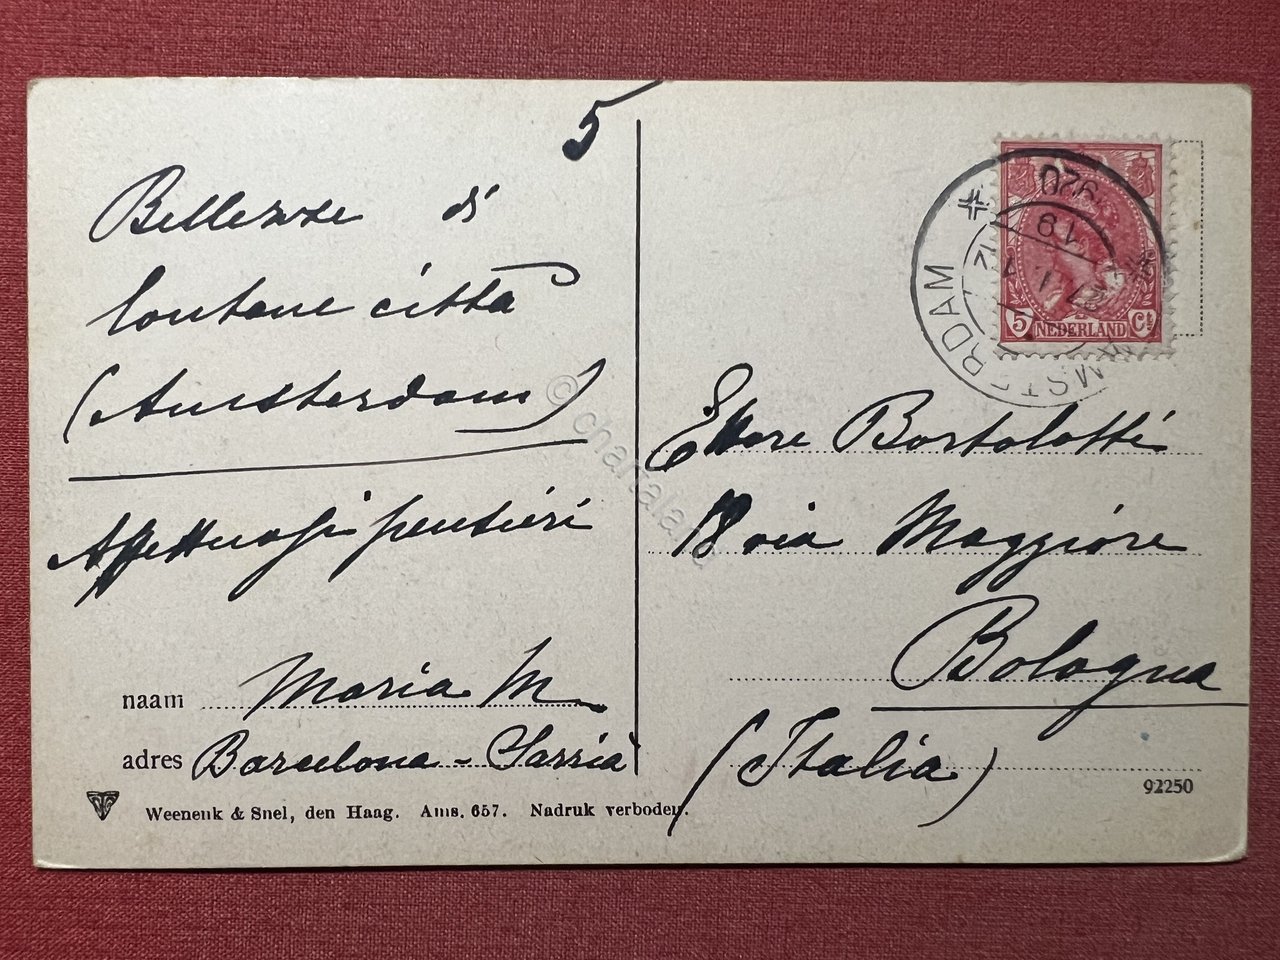 5
Bellezze di
lontane città
(Amsterdam)
Affettuosi pensieri
naam Maria M
adres Barcelona - Sarrià
Weenenk & Snel, den Haag. Ams. 657. Nadruk verboden.
AMSTERDAM
1920
5 NEDERLAND Ct
Ettore Bortolotti
18 via Maggiore
Bologna
(Italia)
92250
© chartaland